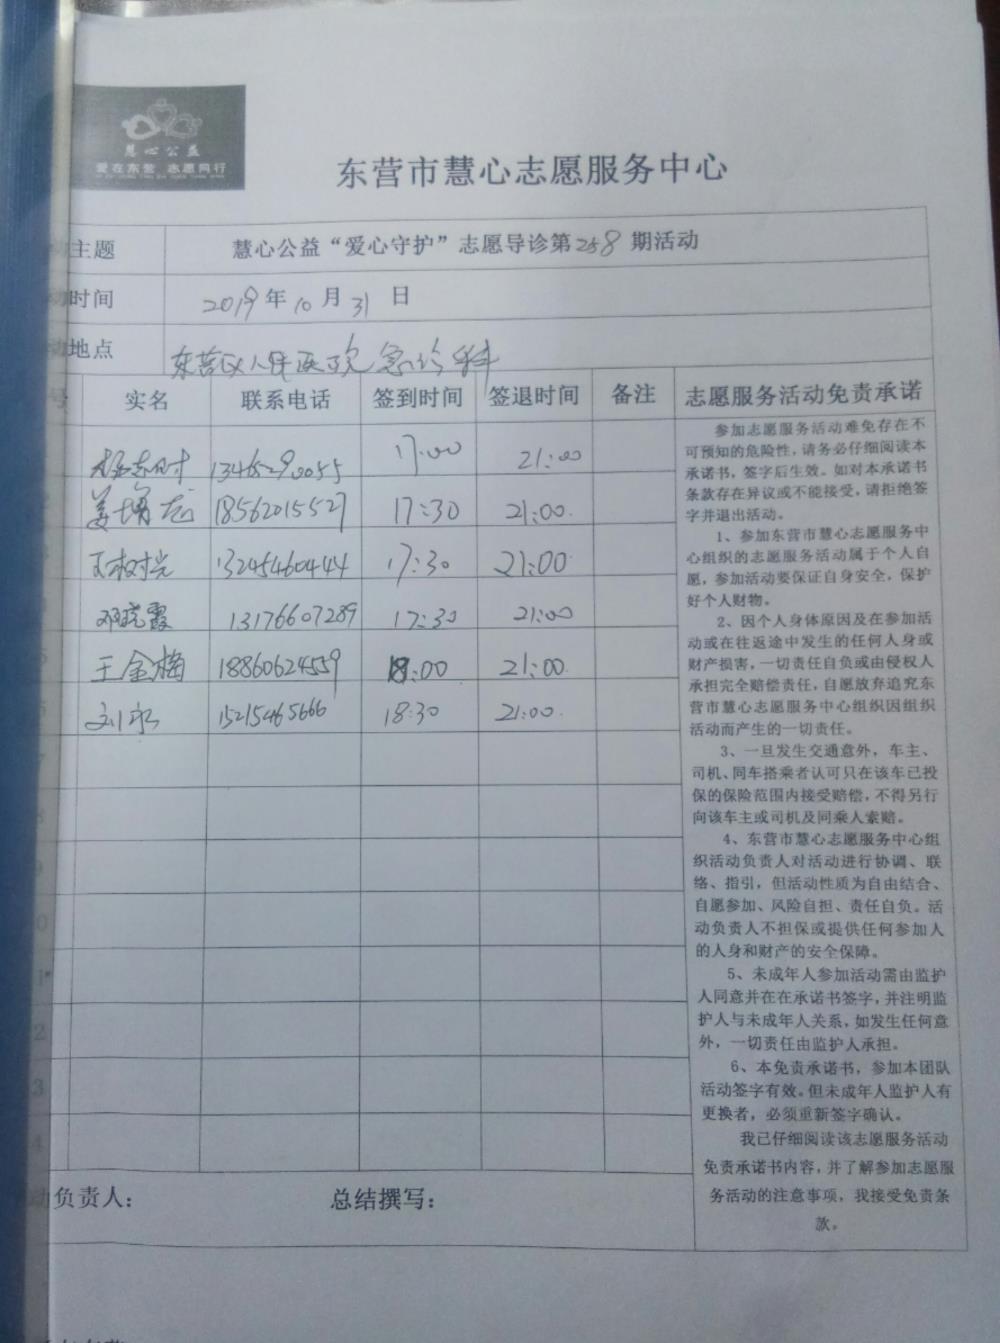 慧心公益
爱在东营 志愿同行
东营市慧心志愿服务中心
动主题 慧心公益“爱心守护”志愿导诊第258期活动
动时间 2019年10月31日
动地点 东营区人民医院急诊科
号 实名 联系电话 签到时间 签退时间 备注 志愿服务活动免责承诺
13465290055 17:00 21:00
姜增志 18562015527 17:30 21:00
13245460444 17:30 21:00
邓晓霞 13176607289 17:30 21:00
王金梅 18860624559 18:00 21:00
刘 15215465666 18:30 21:00
参加志愿服务活动难免存在不
可预知的危险性，请务必仔细阅读本
承诺书，签字后生效。如对本承诺书
条款存在异议或不能接受，请拒绝签
字并退出活动。
1、参加东营市慧心志愿服务中
心组织的志愿服务活动属于个人自
愿，参加活动要保证自身安全，保护
好个人财物。
2、因个人身体原因及在参加活
动或在往返途中发生的任何人身或
财产损害，一切责任自负或由侵权人
承担完全赔偿责任，自愿放弃追究东
营市慧心志愿服务中心组织因组织
活动而产生的一切责任。
3、一旦发生交通意外，车主、
司机、同车搭乘者认可只在该车已投
保的保险范围内接受赔偿，不得另行
向该车主或司机及同乘人索赔。
4、东营市慧心志愿服务中心组
织活动负责人对活动进行协调、联
络、指引，但活动性质为自由结合、
自愿参加、风险自担、责任自负。活
动负责人不担保或提供任何参加人
的人身和财产的安全保障。
5、未成年人参加活动需由监护
人同意并在在承诺书签字，并注明监
护人与未成年人关系，如发生任何意
外，一切责任由监护人承担。
6、本免责承诺书，参加本团队
活动签字有效。但未成年人监护人有
更换者，必须重新签字确认。
我已仔细阅读该志愿服务活动
免责承诺书内容，并了解参加志愿服
务活动的注意事项，我接受免责条
款。
动负责人： 总结撰写：